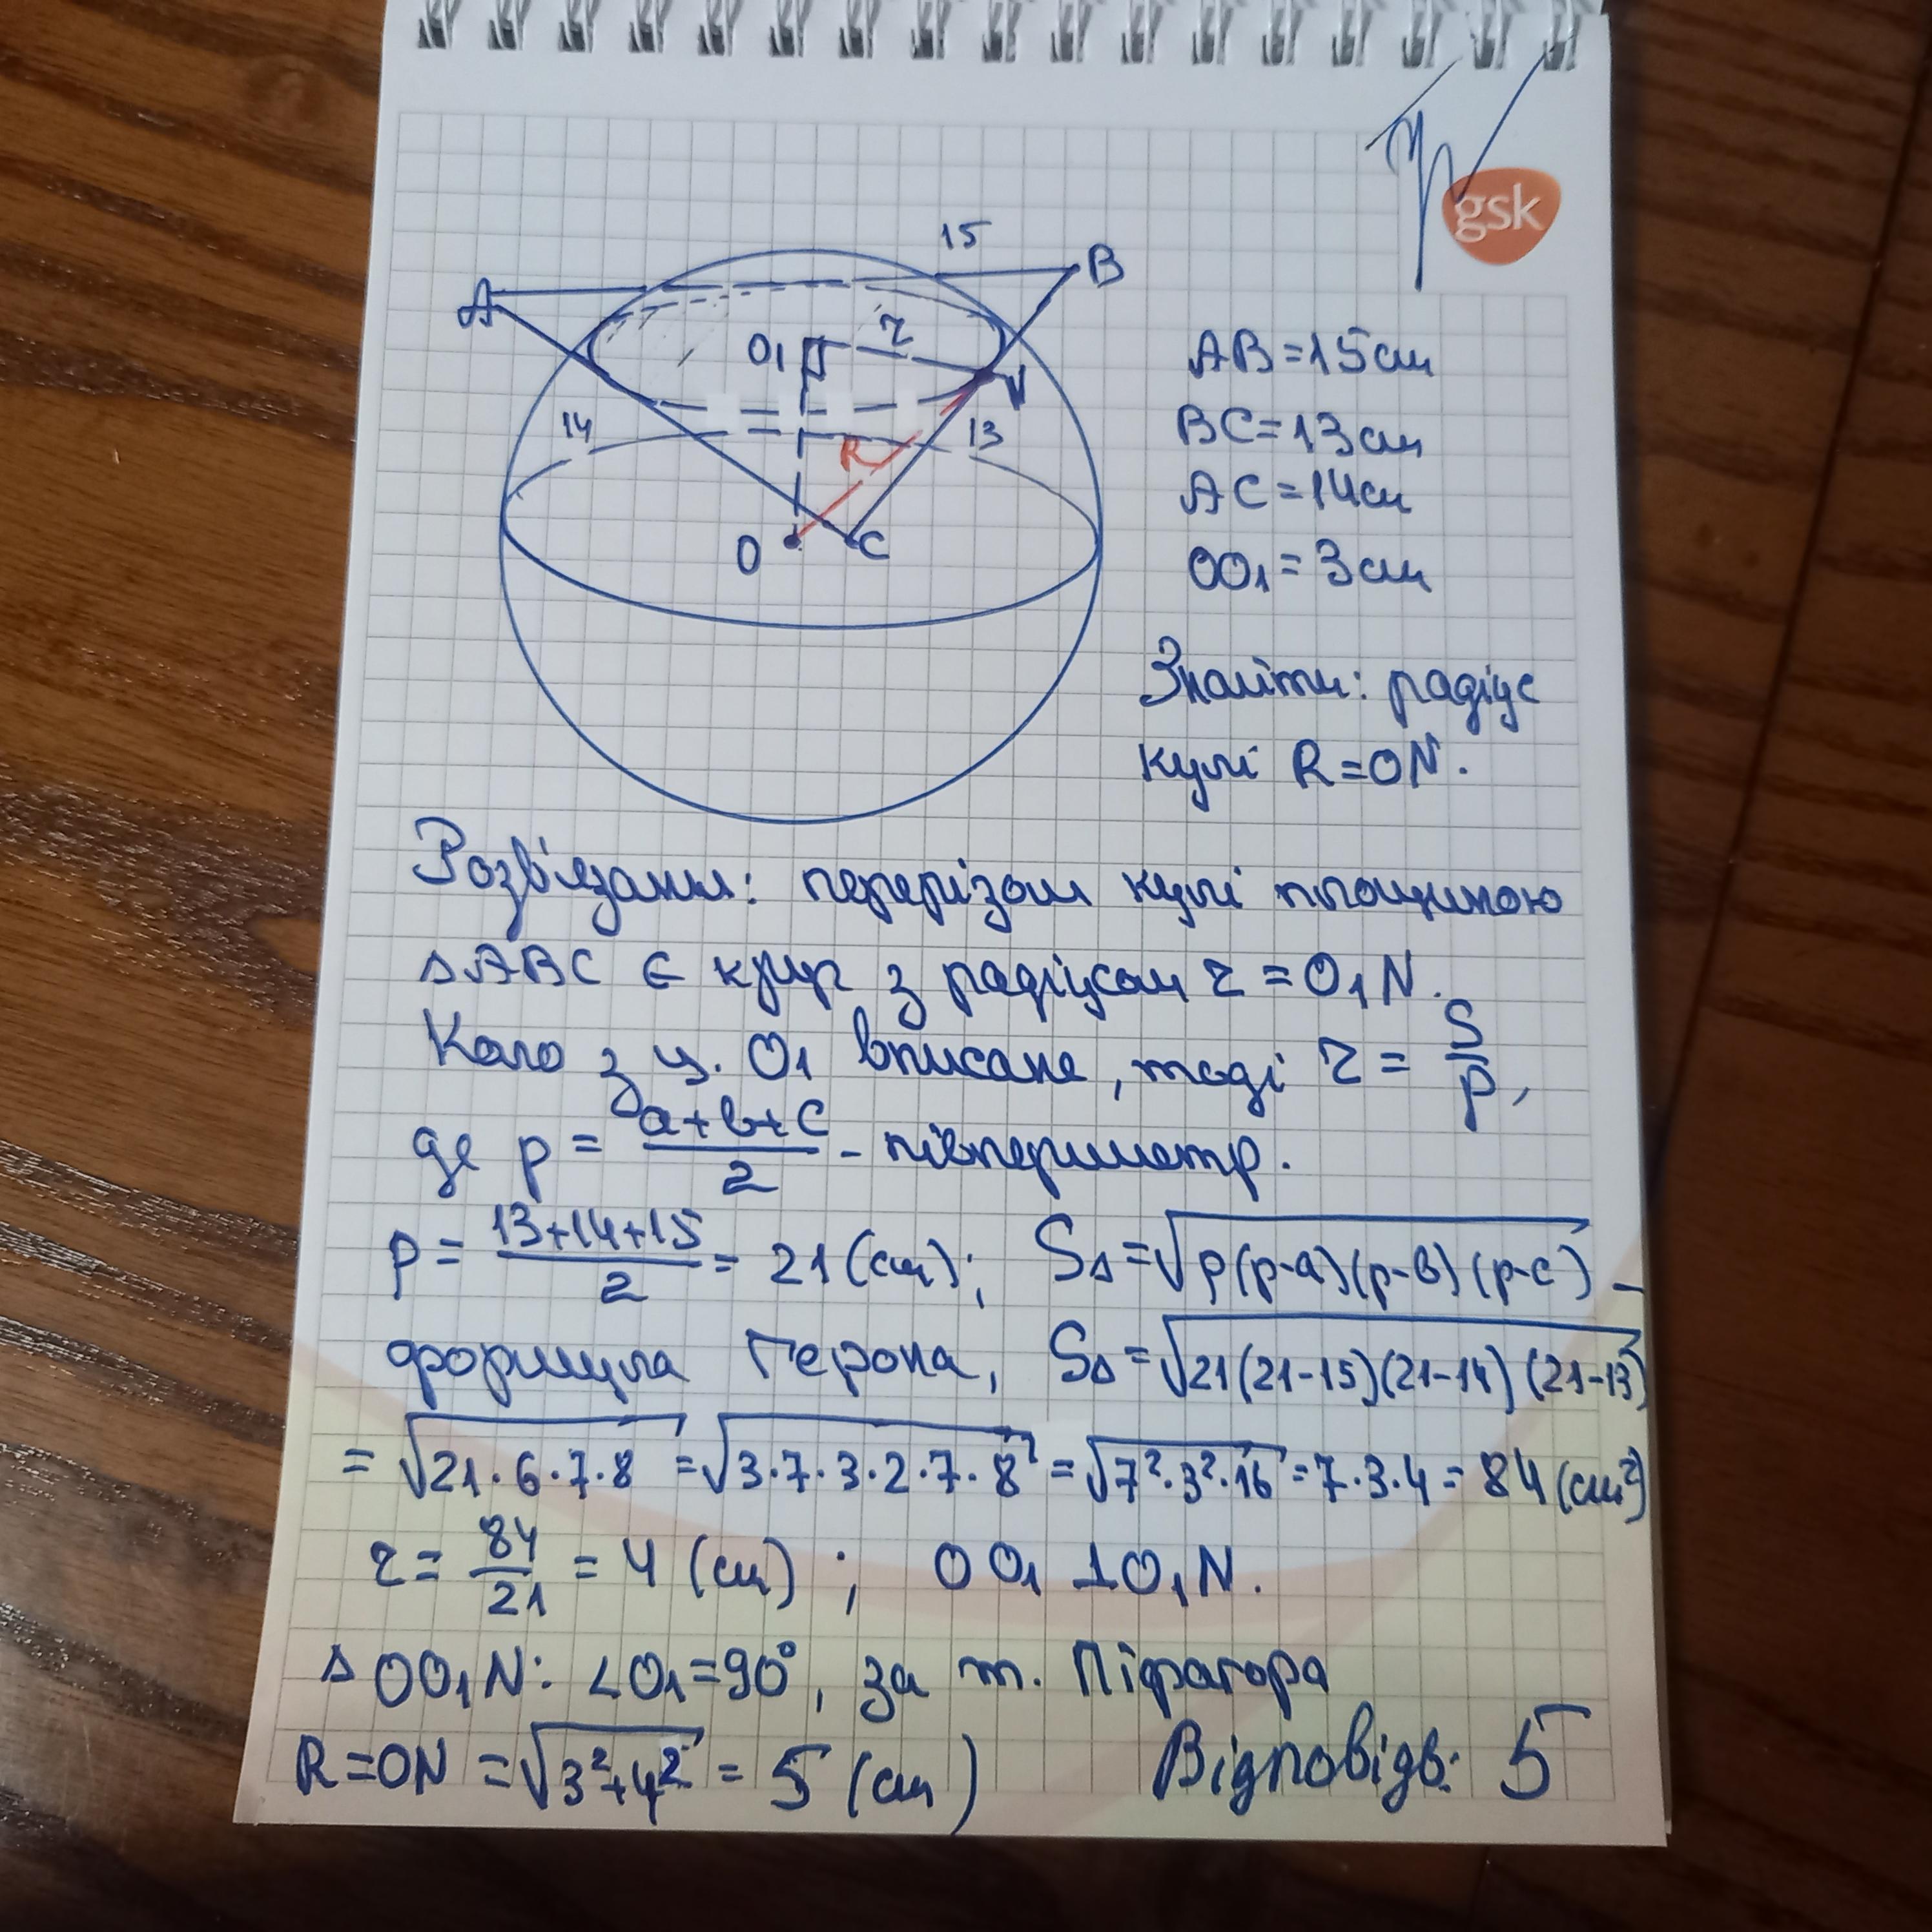 gsk
15
A
B
O₁
r
N
14
13
R
O
C
AB = 15 см
BC = 13 см
AC = 14 см
OO₁ = 3 см
Знайти: радіус
кулі R = ON.
Розв'язання: перерізом кулі площиною
△ABC є круг з радіусом r = O₁N.
Коло з ц. O₁ вписане, тоді r = S/p,
де p = (a+b+c)/2 - півпериметр.
p = (13+14+15)/2 = 21 (см); S△ = √(p(p-a)(p-b)(p-c)) –
формула Герона, S△ = √(21(21-15)(21-14)(21-13))
= √(21·6·7·8) = √(3·7·3·2·7·8) = √(7²·3²·16) = 7·3·4 = 84 (см²)
r = 84/21 = 4 (см); OO₁ ⊥ O₁N.
△OO₁N: ∠O₁ = 90°, за т. Піфагора
R = ON = √(3²+4²) = 5 (см) Відповідь: 5